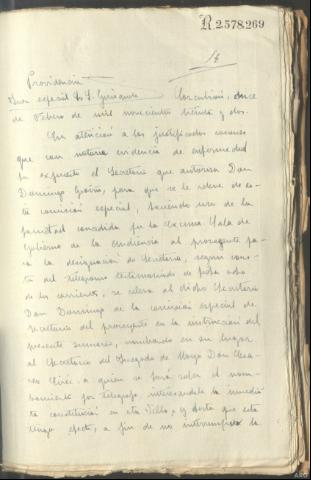 R.2578.269
Providencia
Juez especial
de Febrero de mil novecientos treinta y dos.
En atención a las justificadas causas
que con notoria evidencia de enfermedad
ha expuesto el Secretario que autoriza Don
Domingo para que se le releve de es-
ta comisión especial, haciendo uso de la
facultad concedida por la Excma. Sala de
Gobierno de la Audiencia al proveyente pa-
ra la designación de Secretario, según cons-
ta del telegrama testimoniado de fecha ocho
de los corrientes, se releva al dicho Secretario
Don Domingo de la comisión especial de
Secretario del proveyente en la instrucción del
presente sumario, nombrando en su lugar
al Secretario del Juzgado de Don
a quien se hará saber el nom-
bramiento por telégrafo, interesándole la inmedia-
ta constitución en esta Villa, y hasta que esta
tenga efecto, a fin de no interrumpir la